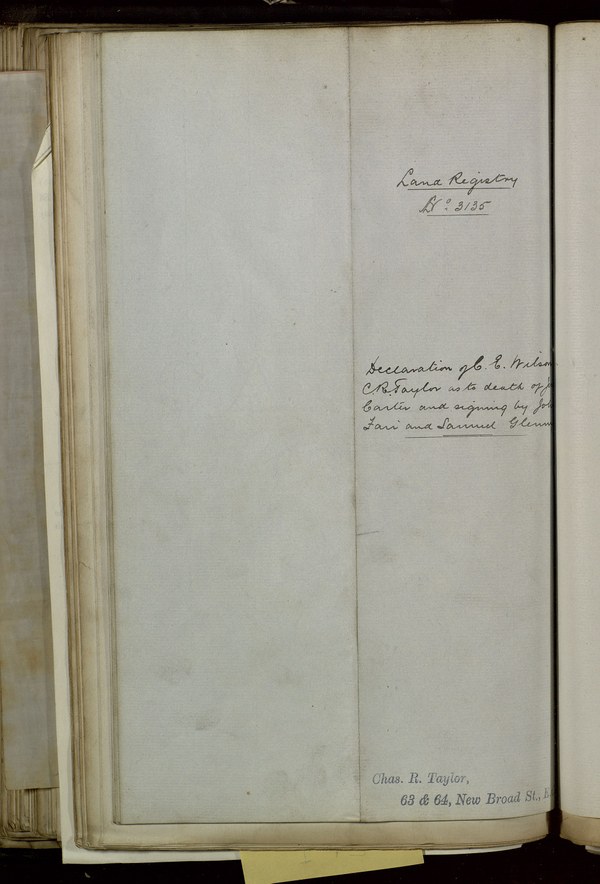 Land Registry
No. 3135
Declaration of C. E. Wilson
C. R. Taylor as to death of
Carter and signing by
Farr and Samuel Glenn
Chas. R. Taylor,
63 & 64, New Broad St.,